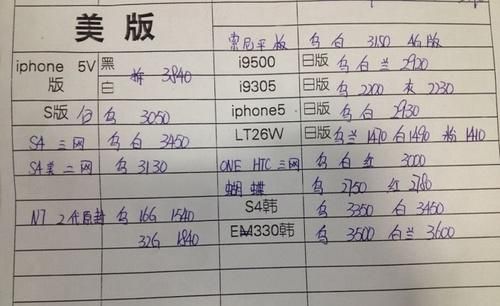 美版
索尼平板 乌 白 3150 4G版
iphone 5V版 黑白 拆 3840
i9500 日版 乌 白 兰 2920
i9305 日版 乌 2200 灰 2230
S版 白 乌 3050
iphone5 日版 乌 2930
S4 三网 乌 白 3450
LT26W 日版 乌兰 1470 白1490 粉 1410
S4美 二网 乌 3130
ONE HTC 三网 乌 白 红 3000
蝴蝶 乌 2750 红 2780
N7 2代原封 乌 16G 1540
S4韩 乌 3350 白 3450
32G 1840
EM330韩 乌 3500 白兰 3600